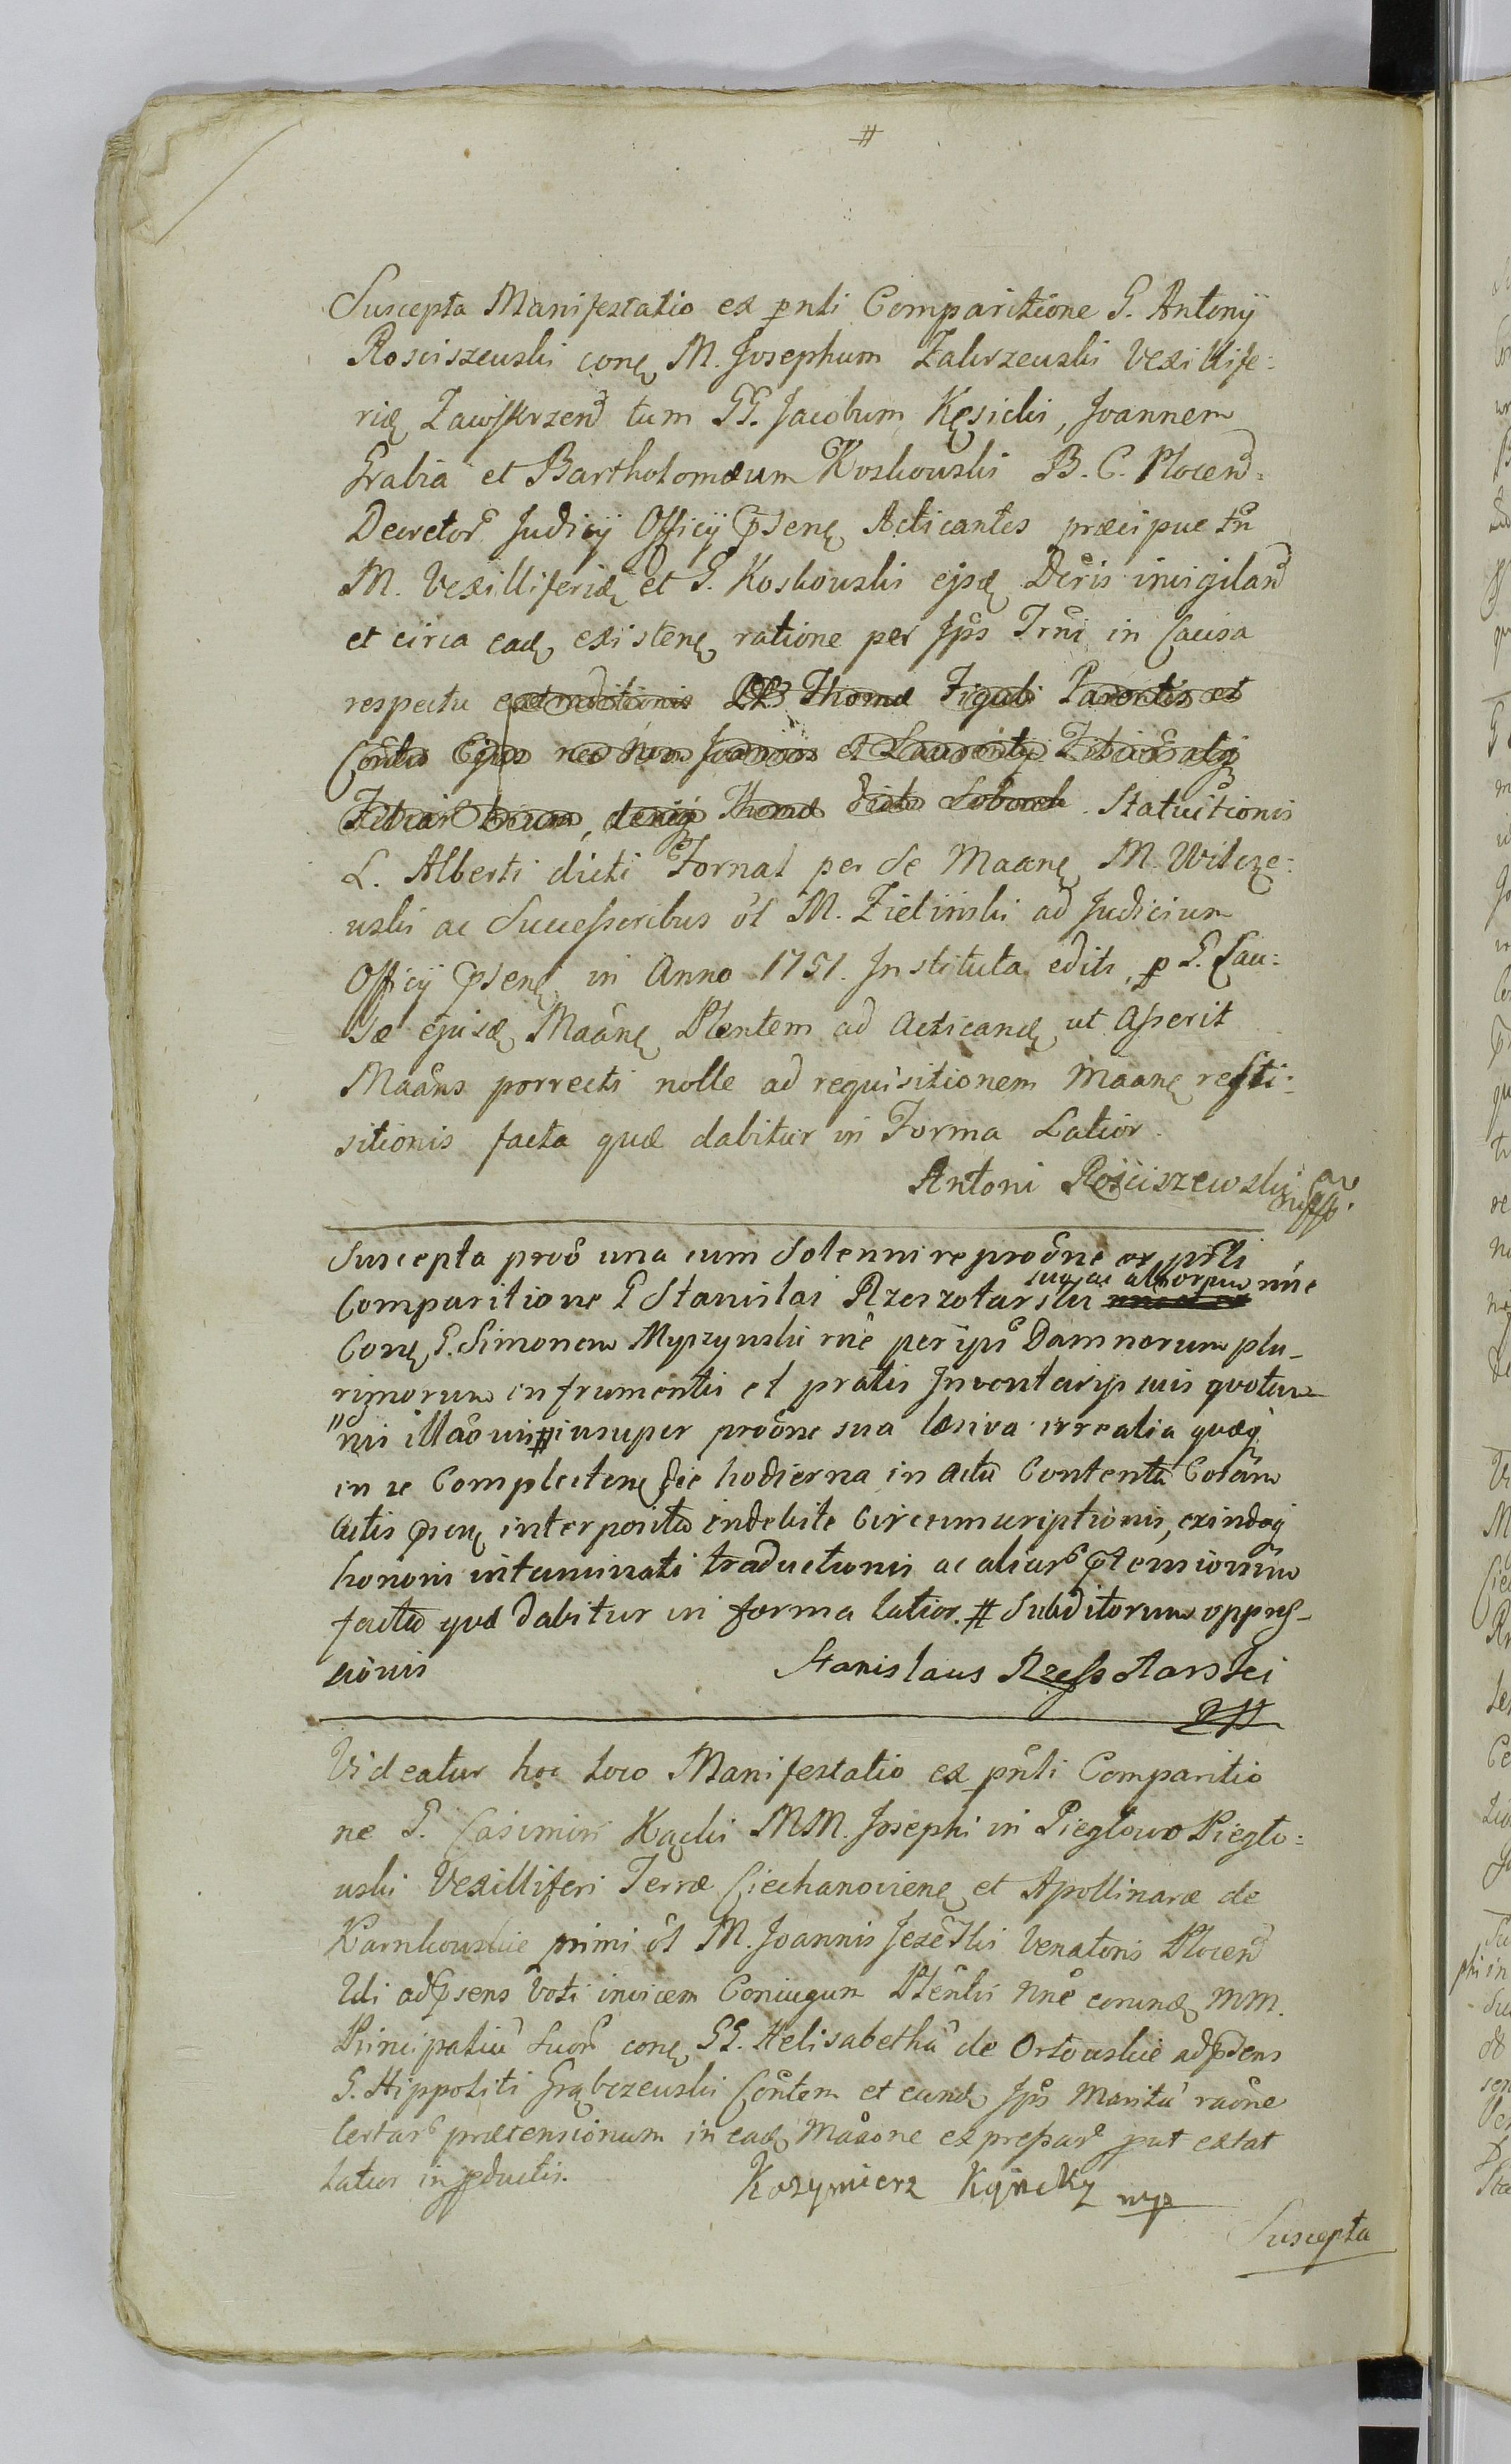 #
Suscepta Manifestatio ex pnti Comparitione G. Antonij
Rosciszewski conq M. Josephum Zakrzewski Vexillife:
rid Zawskrzen tum GG. Jacobum Kęsicki, Joannem
Grabia et Bartholomæum Koskowski B. C. Plocen.
Decretor Judicÿ Officÿ Psenq Acticantes præcipue tn
M. Vexilliferid et G. Koskowski ejsd Dcris invigilan
et circa ead existenq ratione per Jps Trni in Causa
respectu extraditionis LL. Thomæ Figuli Parentis et
Contis Ejus nec non Joannis et Laurentÿ
Thomæ dicti Statuitionis
L. Alberti dicti Fornal per se Maanq M. Wilcze:
wski ac Successoribus ol M. Zielinski ad Judicium
Officÿ Psenq in Anno 1751. Instituta edits, p G. Cau:
sæ ejusd Maanq Plentem ad acticand ut asserit
Maans porrecti nolle ad requisitionem Maanq resti:
sitionis facta quæ dabitur in Forma Latior.
Antoni Rościszewski
Suscepta proō una cum solenni reproōne ex pnti
Comparitione G Stanislai Rzeszotarski suo ac aliorum nne
Conq G. Simonem Myszynski rne per ips Damnorum plu-
rimorum in frumentis et pratis Inventarÿ suis quotan-
nis illaōnis # insuper proōne sua læsiva irrealia quæq
in se Complectenq die hodierna in actu Contentu Coram
actis Psenq interposita indebite Circumscriptionis, exindeq
honoris intaminati traductionis ac aliar Ptensionum
facta quæ dabitur in forma latior. # Subditorum oppres-
sionis
Stanislaus Rzesso tarski
Videatur hoc loco Manifestatio ex pnti Comparitio
ne G. Casimiri Kącki MM. Josephi in Pieglowo Pieglo:
wski Vexilliferi Terræ Ciechanovienq et Apollinaræ de
Karnkowskie primi ol M. Joannis Jeżewski Venatoris Plocen
Udi ad Psens Voti invicem Coniugum Plentis nne eorund MM.
Principaliu Suor conq GG. Helisabetha de Orłowskie ad Psens
G. Hippoliti Grąbczewski Contem et eund Jps Maritu raōne
certar prætensionum in ead Maaone expressar put extat
latior in pductis.
Kazymierz Kącky mp
Suscepta